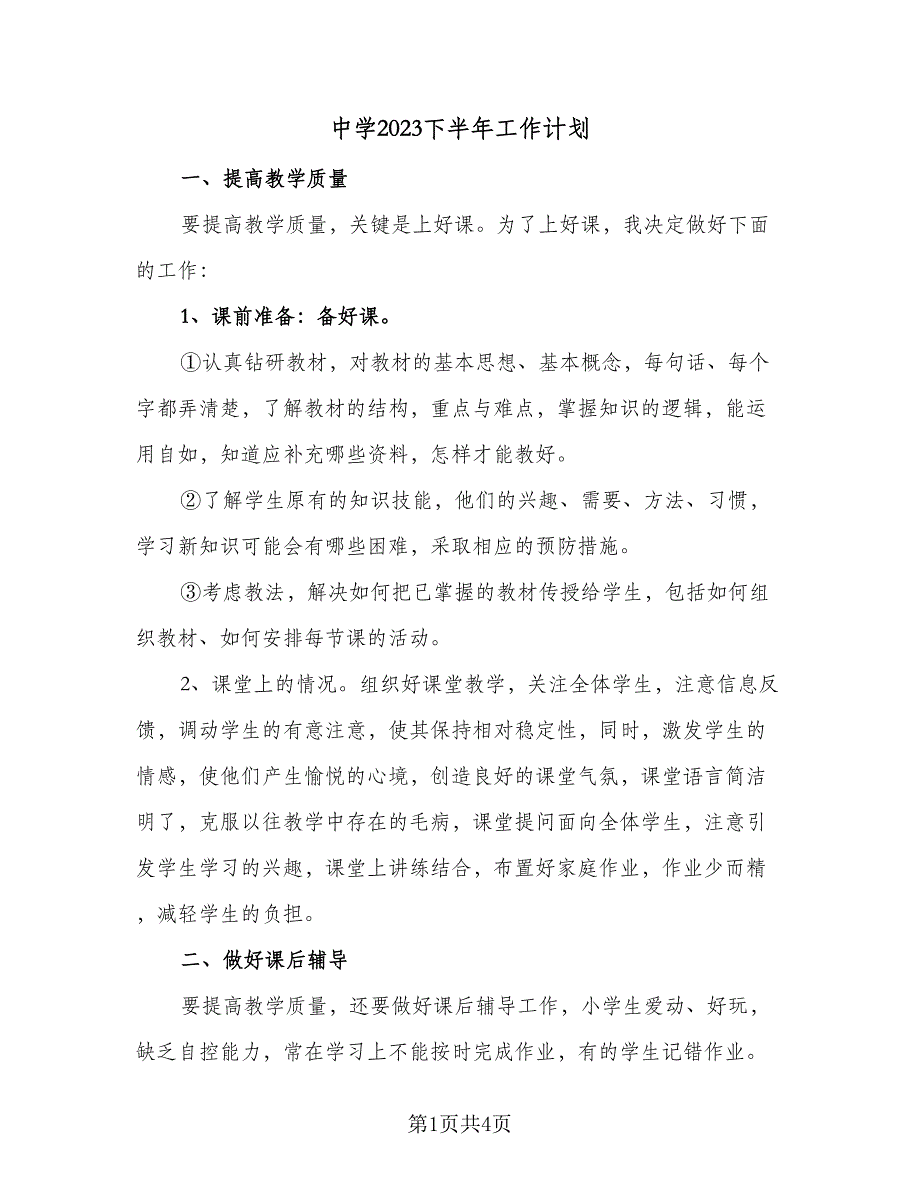 中学2023下半年工作计划
一、提高教学质量
要提高教学质量，关键是上好课。为了上好课，我决定做好下面
的工作：
1、课前准备：备好课。
①认真钻研教材，对教材的基本思想、基本概念，每句话、每个
字都弄清楚，了解教材的结构，重点与难点，掌握知识的逻辑，能运
用自如，知道应补充哪些资料，怎样才能教好。
②了解学生原有的知识技能，他们的兴趣、需要、方法、习惯，
学习新知识可能会有哪些困难，采取相应的预防措施。
③考虑教法，解决如何把已掌握的教材传授给学生，包括如何组
织教材、如何安排每节课的活动。
2、课堂上的情况。组织好课堂教学，关注全体学生，注意信息反
馈，调动学生的有意注意，使其保持相对稳定性，同时，激发学生的
情感，使他们产生愉悦的心境，创造良好的课堂气氛，课堂语言简洁
明了，克服以往教学中存在的毛病，课堂提问面向全体学生，注意引
发学生学习的兴趣，课堂上讲练结合，布置好家庭作业，作业少而精
，减轻学生的负担。
二、做好课后辅导
要提高教学质量，还要做好课后辅导工作，小学生爱动、好玩，
缺乏自控能力，常在学习上不能按时完成作业，有的学生记错作业。
第1页共4页